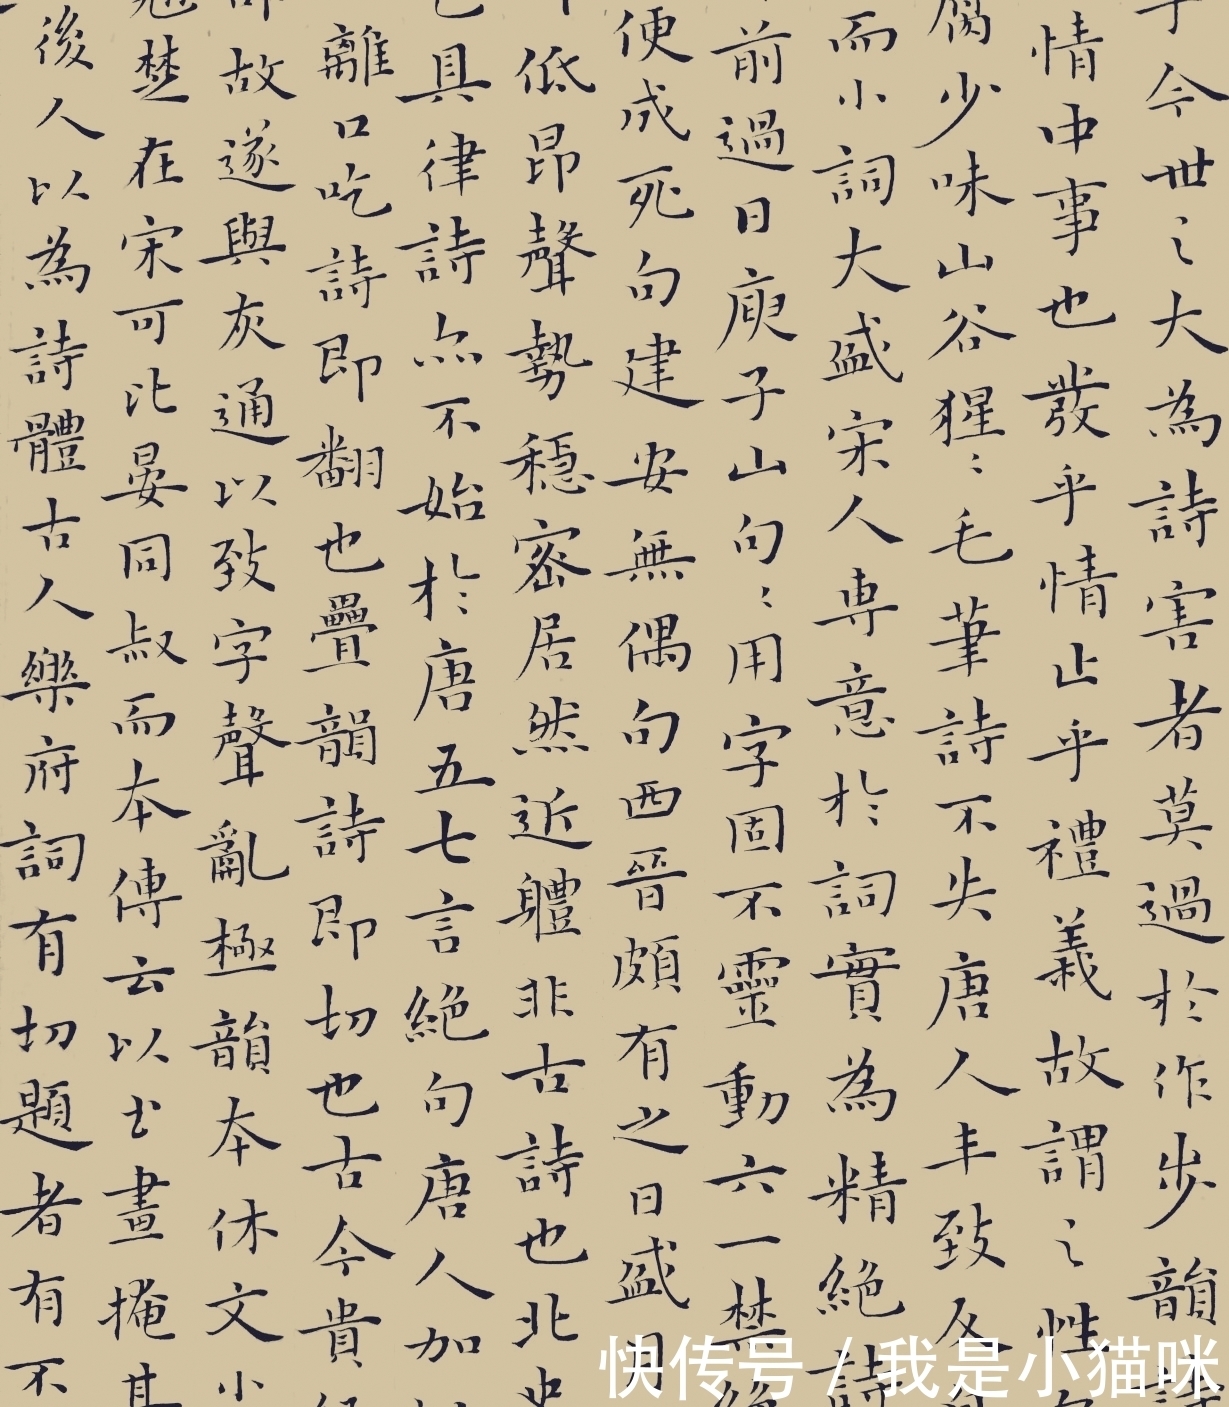 于今世之大為詩害者莫過於作步韻詩
情中事也發乎情止乎禮義故謂之性
腐少味山谷猩〻毛筆詩不失唐人丰致反
而小詞大盛宋人専意於詞實為精絕詩
前過日庾子山句〻用字固不靈動六一禁絕
便成死句建安無偶句西晉頗有之日盛月
低昂聲勢穩密居然近體非古詩也北史
具律詩亦不始於唐五七言絕句唐人加
離口吃詩即翻也疊韻詩即切也古今貴
故遂與灰通以致字聲亂極韻本休文小
楚在宋可比晏同叔而本傳云以士畫掩其
後人以為詩體古人樂府詞有切題者有不
快传号 / 我是小猫咪